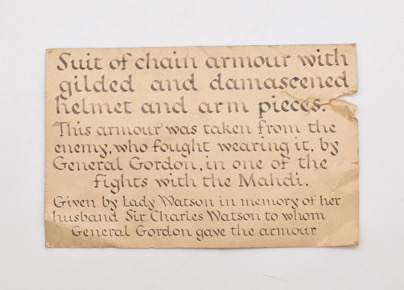 Suit of chain armour with
gilded and damascened
helmet and arm pieces.
This armour was taken from the
enemy, who fought wearing it, by
General Gordon, in one of the
fights with the Mahdi.
Given by Lady Watson in memory of her
husband Sir Charles Watson to whom
General Gordon gave the armour